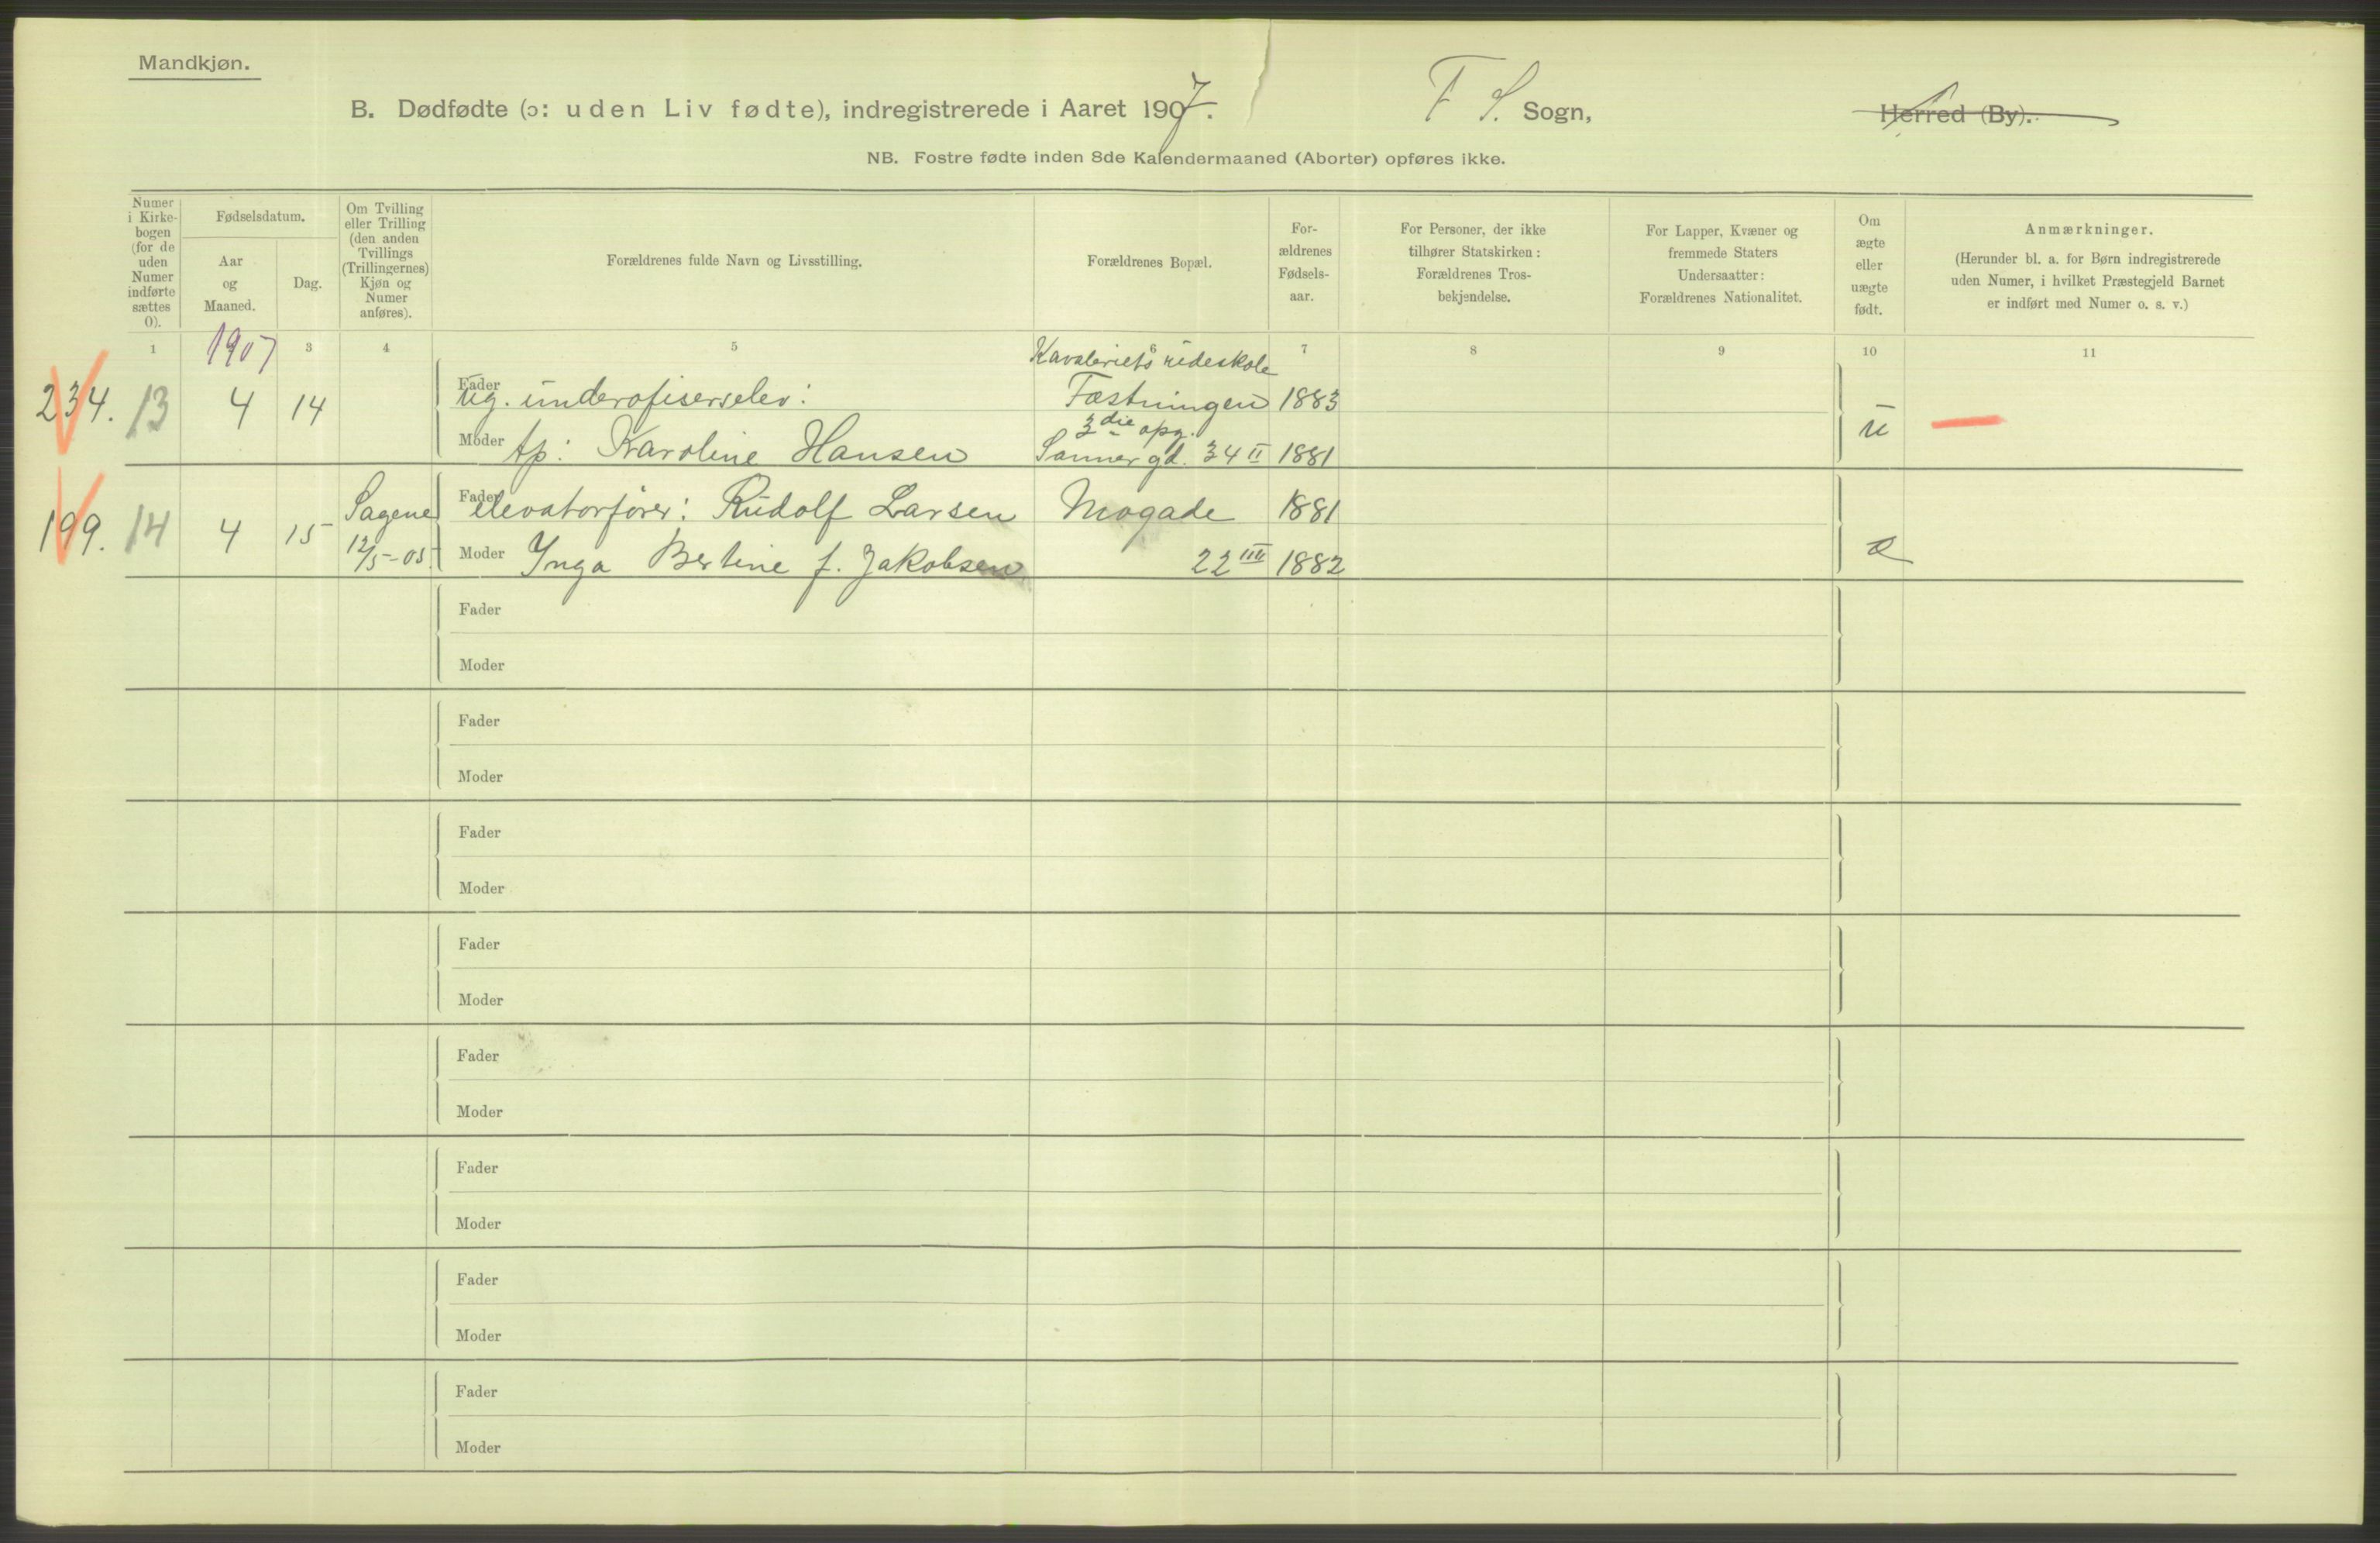 Mandkjøn.
B. Dødfødte (ɔ: uden Liv fødte), indregistrerede i Aaret 1907. F S. Sogn, Herred (By).
NB. Fostre fødte inden 8de Kalendermaaned (Aborter) opføres ikke.
Numer i Kirke-
bogen
(for de
uden
Numer
indførte
sættes
0).
Fødselsdatum.
Aar
og
Maaned.
Dag.
Om Tvilling
eller Trilling
(den anden
Tvillings
(Trillingernes)
Kjøn og
Numer
anføres).
Forældrenes fulde Navn og Livsstilling.
Forældrenes Bopæl.
For-
ældrenes
Fødsels-
aar.
For Personer, der ikke
tilhører Statskirken:
Forældrenes Tros-
bekjendelse.
For Lapper, Kvæner og
fremmede Staters
Undersaatter:
Forældrenes Nationalitet.
Om
ægte
eller
uægte
født.
Anmærkninger.
(Herunder bl. a. for Børn indregistrerede
uden Numer, i hvilket Præstegjeld Barnet
er indført med Numer o. s. v.)
1 3 4 5 6 7 8 9 10 11
1907
Kavaleriets rideskole
234. 13 4 14 Fader ug. underofiserselev: Fæstningen 1883
3die opg.
Moder tp: Karoline Hansen Sannergd. 34 II 1881 u
199. 14 4 15 Sagene Fader elevatorfører: Rudolf Larsen Mogade 1881
12/5-05 Moder Inga Bertine f. Jakobsen 22 III 1882 æ
Fader
Moder
Fader
Moder
Fader
Moder
Fader
Moder
Fader
Moder
Fader
Moder
Fader
Moder
Fader
Moder